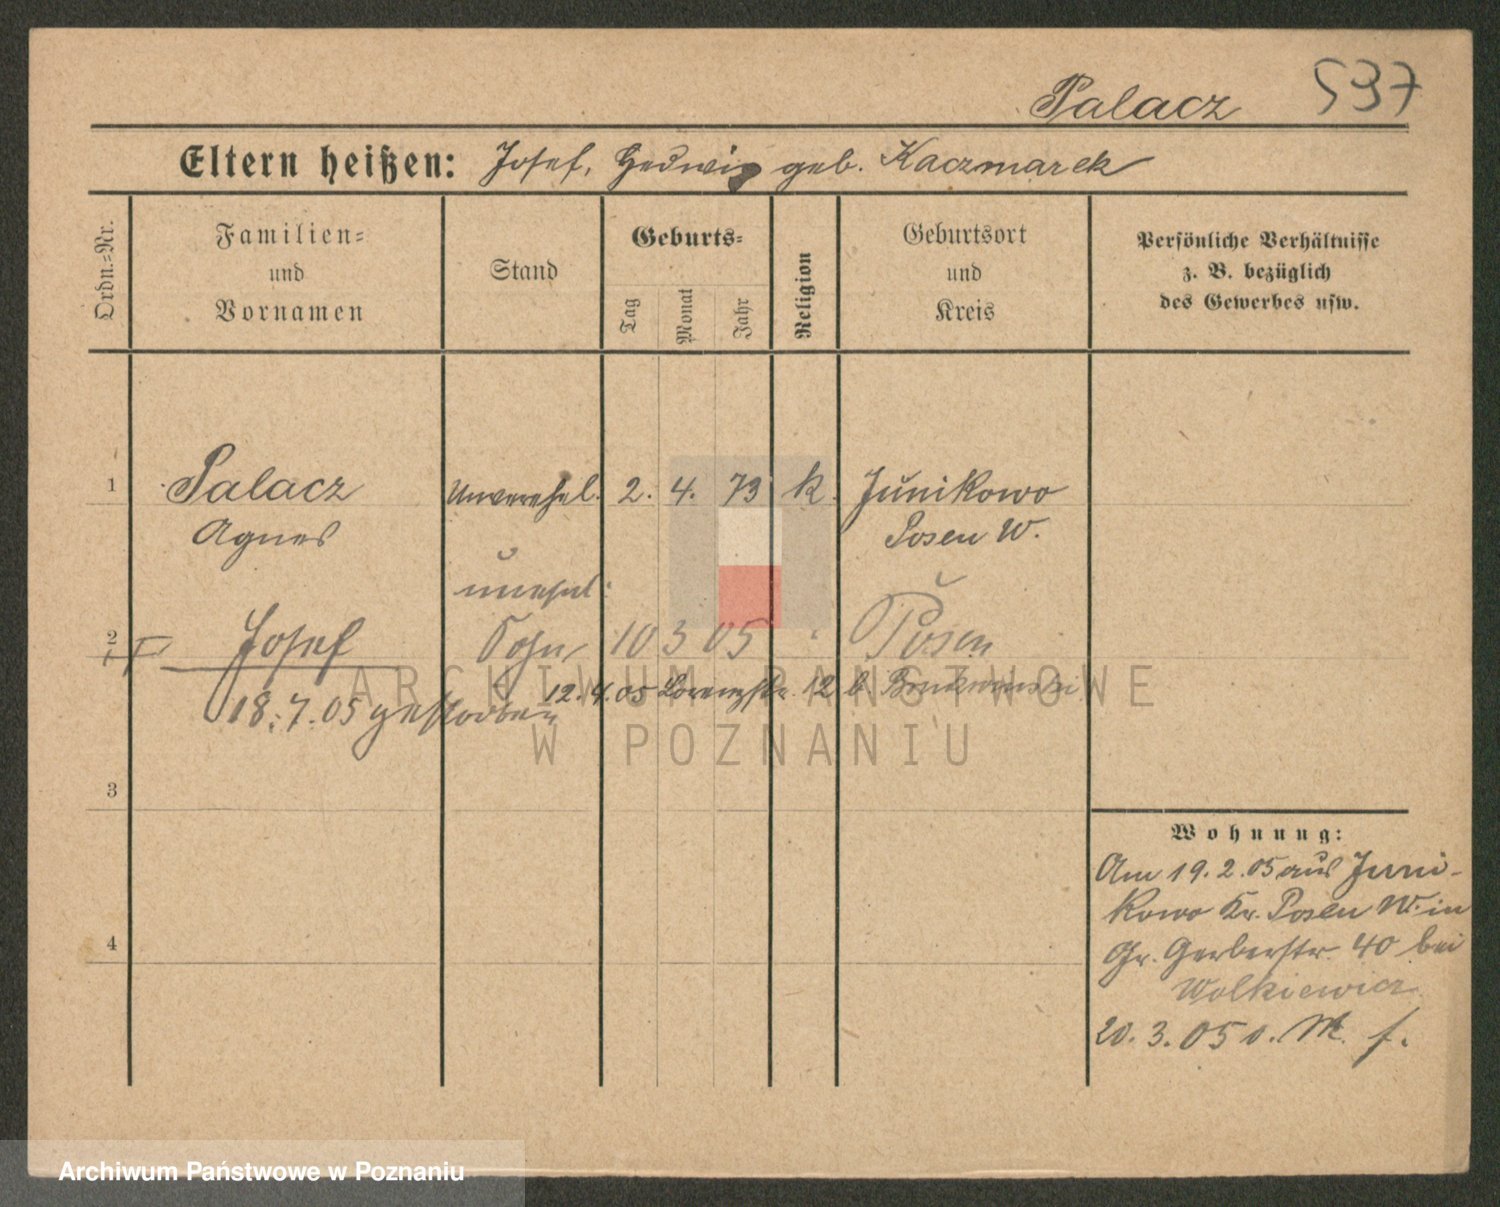 Palacz 537
Eltern heißen: Josef, Hedwig geb. Kaczmarek
Ordn.-Nr.
Familien-
und
Vornamen
Stand
Geburts-
Tag
Monat
Jahr
Religion
Geburtsort
und
Kreis
Persönliche Verhältnisse
z. B. bezüglich
des Gewerbes usw.
1 Palacz Unverehel. 2. 4. 73 k. Junikowo
Agnes Posen W.
unehel.
2 Josef Sohn 10 3 05 Posen
12.4.05 Lorenzstr. 12 b
18.7.05 gestorben
ARCHIWUM PAŃSTWOWE
W POZNANIU
3
Wohnung:
Am 19.2.05 aus Juni-
kowo Kr. Posen W. in
4 Gr. Gerberstr. 40 bei
Wolkiewicz
20.3.05 o. M. f.
Archiwum Państwowe w Poznaniu